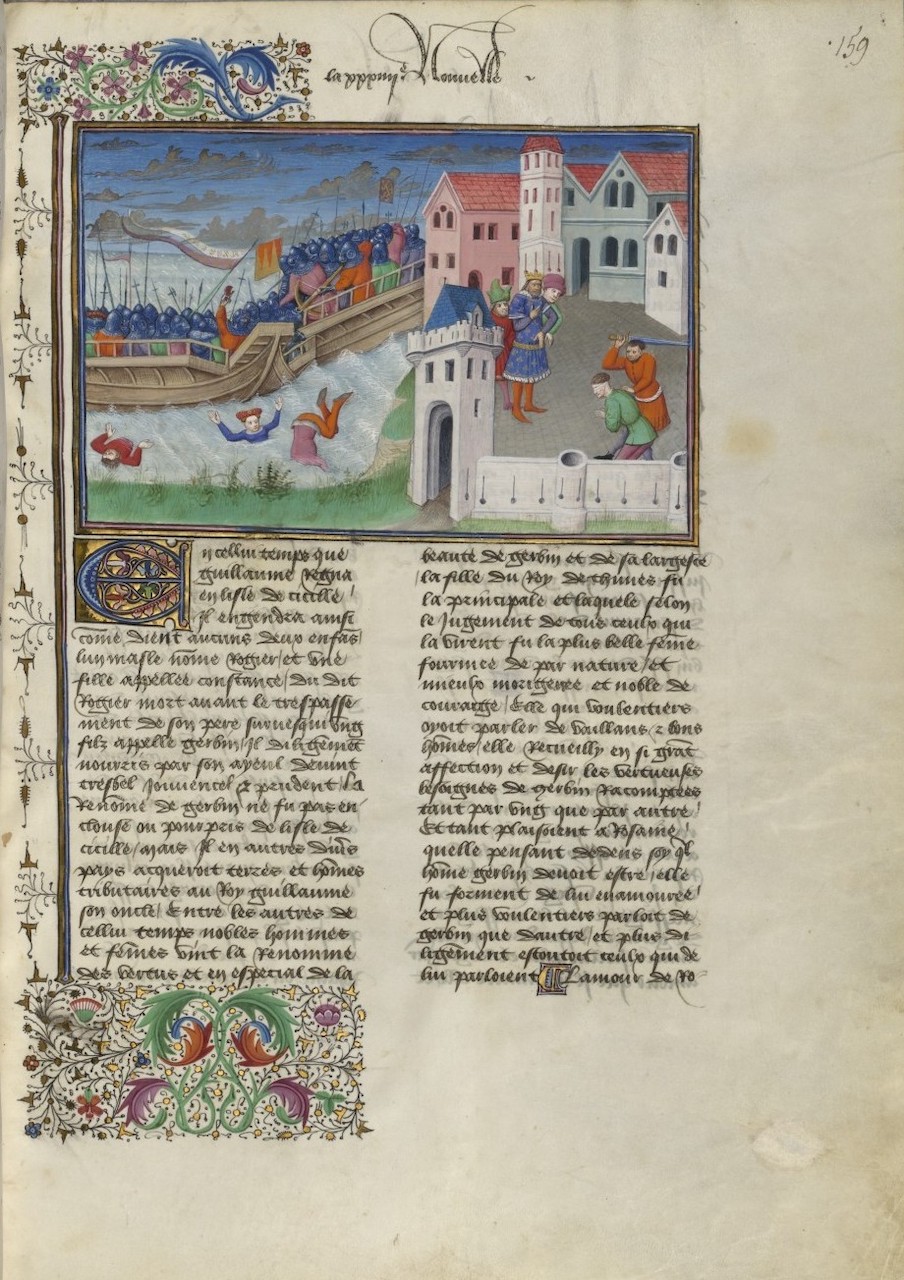 159
la xxxiiii^e Nouuelle
En cellui temps que
guillaume Regna
en lisle de cicille
il engendra ainsi
cōme dient aucuns deux enfās /
lun masle nōme Rogier / et vne
fille appellee constance / du dit
Rogier mort auant le trespasse
ment de son pere suruesqui vng
filz appelle gerbin / Il diligēmēt
nourris par son ayeul deuint
tresbel Iouuencel & prudent / La
Renōme de gerbin ne fu pas en
clouse ou pourpris de lisle de
cicille / mais Il en autres diu's
pays acqueroit terres et hōmes
tributaires au Roy guillaume
son oncle / Entre les autres de
cellui temps nobles hommes
et fēmes vint la Renomme
des vertus et en especial de la
beaute de gerbin et de sa largesce
/ la fille du Roy de thunes fu
la principale et laquele selon
le Jugement de tous ceulx qui
la virent fu la plus belle fēme
fourmee de par nature / et
mieulx morigeree et noble de
couraige / Elle qui voulentiers
oyoit parler de vaillans & bons
hōmes / elle Recueilly en si grāt
affection et desir les vertueuses
besoignes de gerbin Racomptees
tant par vng que par autre /
Et tant plaisoient a Rosame /
quelle pensant dedens soy q̄l
hōme gerbin deuoit estre / elle
fu forment de lui enamouree /
et plus voulentiers parloit de
gerbin que dautre / et plus di
ligēment escoutoit ceulx qui de
lui parloient / Lamour de Ro-